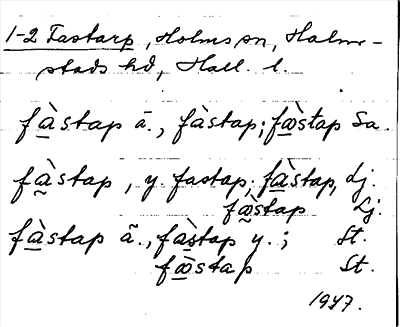 1-2 Tastarp, Holms sn, Halm-
stads hd, Hall. l.
fàstap ä., fàstap; fæ̀stap Sa.
fàstap, y. fastap; fàstap, Lj.
fæ̀stap Lj.
fàstap ä., fàstap y.; St.
fæ̀stap St.
1947.